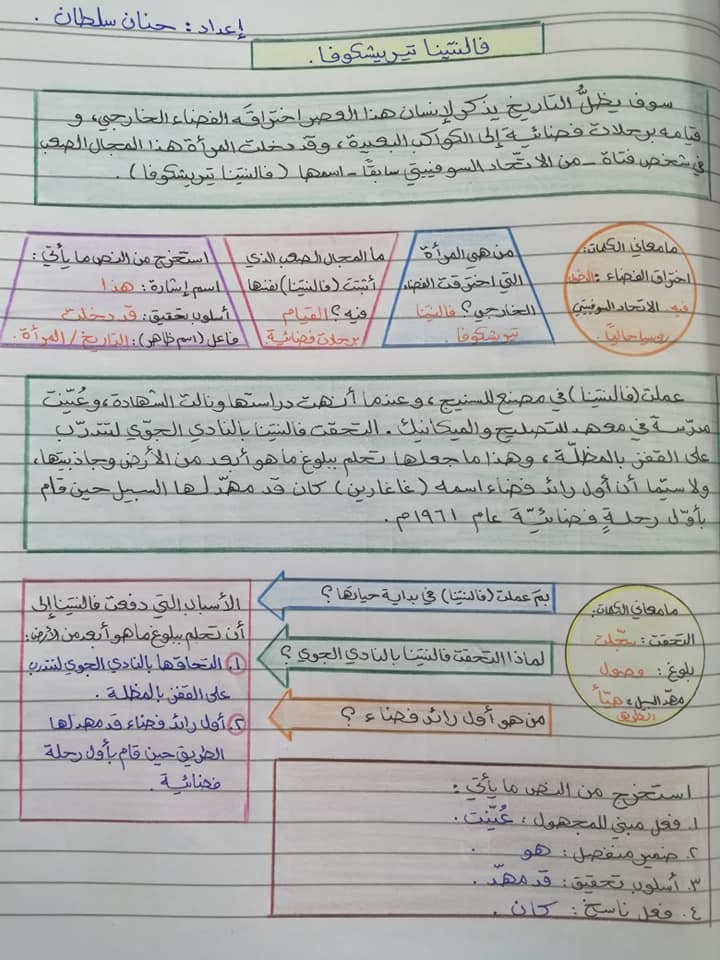 إعداد: حنان سلطان.
فالنتينا تيريشكوفا.
سوف يظلُّ التاريخ يذكر لإنسان هذا العصر اختراقَه الفضاء الخارجي، و
قيامه برحلات فضائية إلى الكواكب البعيدة، وقد دخلت المرأة هذا المجال الصعب
في شخص فتاة - من الاتّحاد السوفييتي سابقًا - اسمها (فالنتينا تيريشكوفا).
ما معاني الكلمات:
اختراق الفضاء: الدخول
فيه. الاتحاد السوفييتي
روسيا حاليًا.
من هي المرأة
التي اخترقت الفضاء
الخارجي؟ فالنتينا
تيريشكوفا.
ما المجال الصعب الذي
أثبتت (فالنتينا) نفسها
فيه؟ القيام
برحلات فضائية
استخرج من النص ما يأتي:
اسم إشارة: هذا
أسلوب تحقيق: قد دخلت
فاعل (اسم ظاهر): التاريخ / المرأة.
عملت (فالنتينا) في مصنع للنسيج، وعندما أنهت دراستها ونالت الشهادة، وعُيّنت
مدرّسة في معهد للتصليح والميكانيك. التحقت فالنتينا بالنادي الجوّي لتتدرّب
على القفز بالمظلّة، وهذا ما جعلها تحلم ببلوغ ما هو أبعد من الأرض وجاذبيتها،
ولا سيّما أن أول رائد فضاء اسمه (غاغارين) كان قد مهّد لها السبيل حين قام
بأوّل رحلةٍ فضائيّة عام ١٩٦١م.
ما معاني الكلمات:
التحقت: سجّلت
بلوغ: وصول
مهّد السبيل: هيّأ
الطريق
بمَ عملت (فالنتينا) في بداية حياتها؟
لماذا التحقت فالنتينا بالنادي الجوي؟
من هو أول رائد فضاء؟
الأسباب التي دفعت فالنتينا إلى
أن تحلم ببلوغ ما هو أبعد من الأرض:
١. التحاقها بالنادي الجوي لتتدرب
على القفز بالمظلة.
٢. أول رائد فضاء قد مهد لها
الطريق حين قام بأول رحلة
فضائية.
استخرج من النص ما يأتي:
١. فعل مبني للمجهول: عُيّنت.
٢. ضمير منفصل: هو.
٣. أسلوب تحقيق: قد مهّد.
٤. فعل ناسخ: كان.